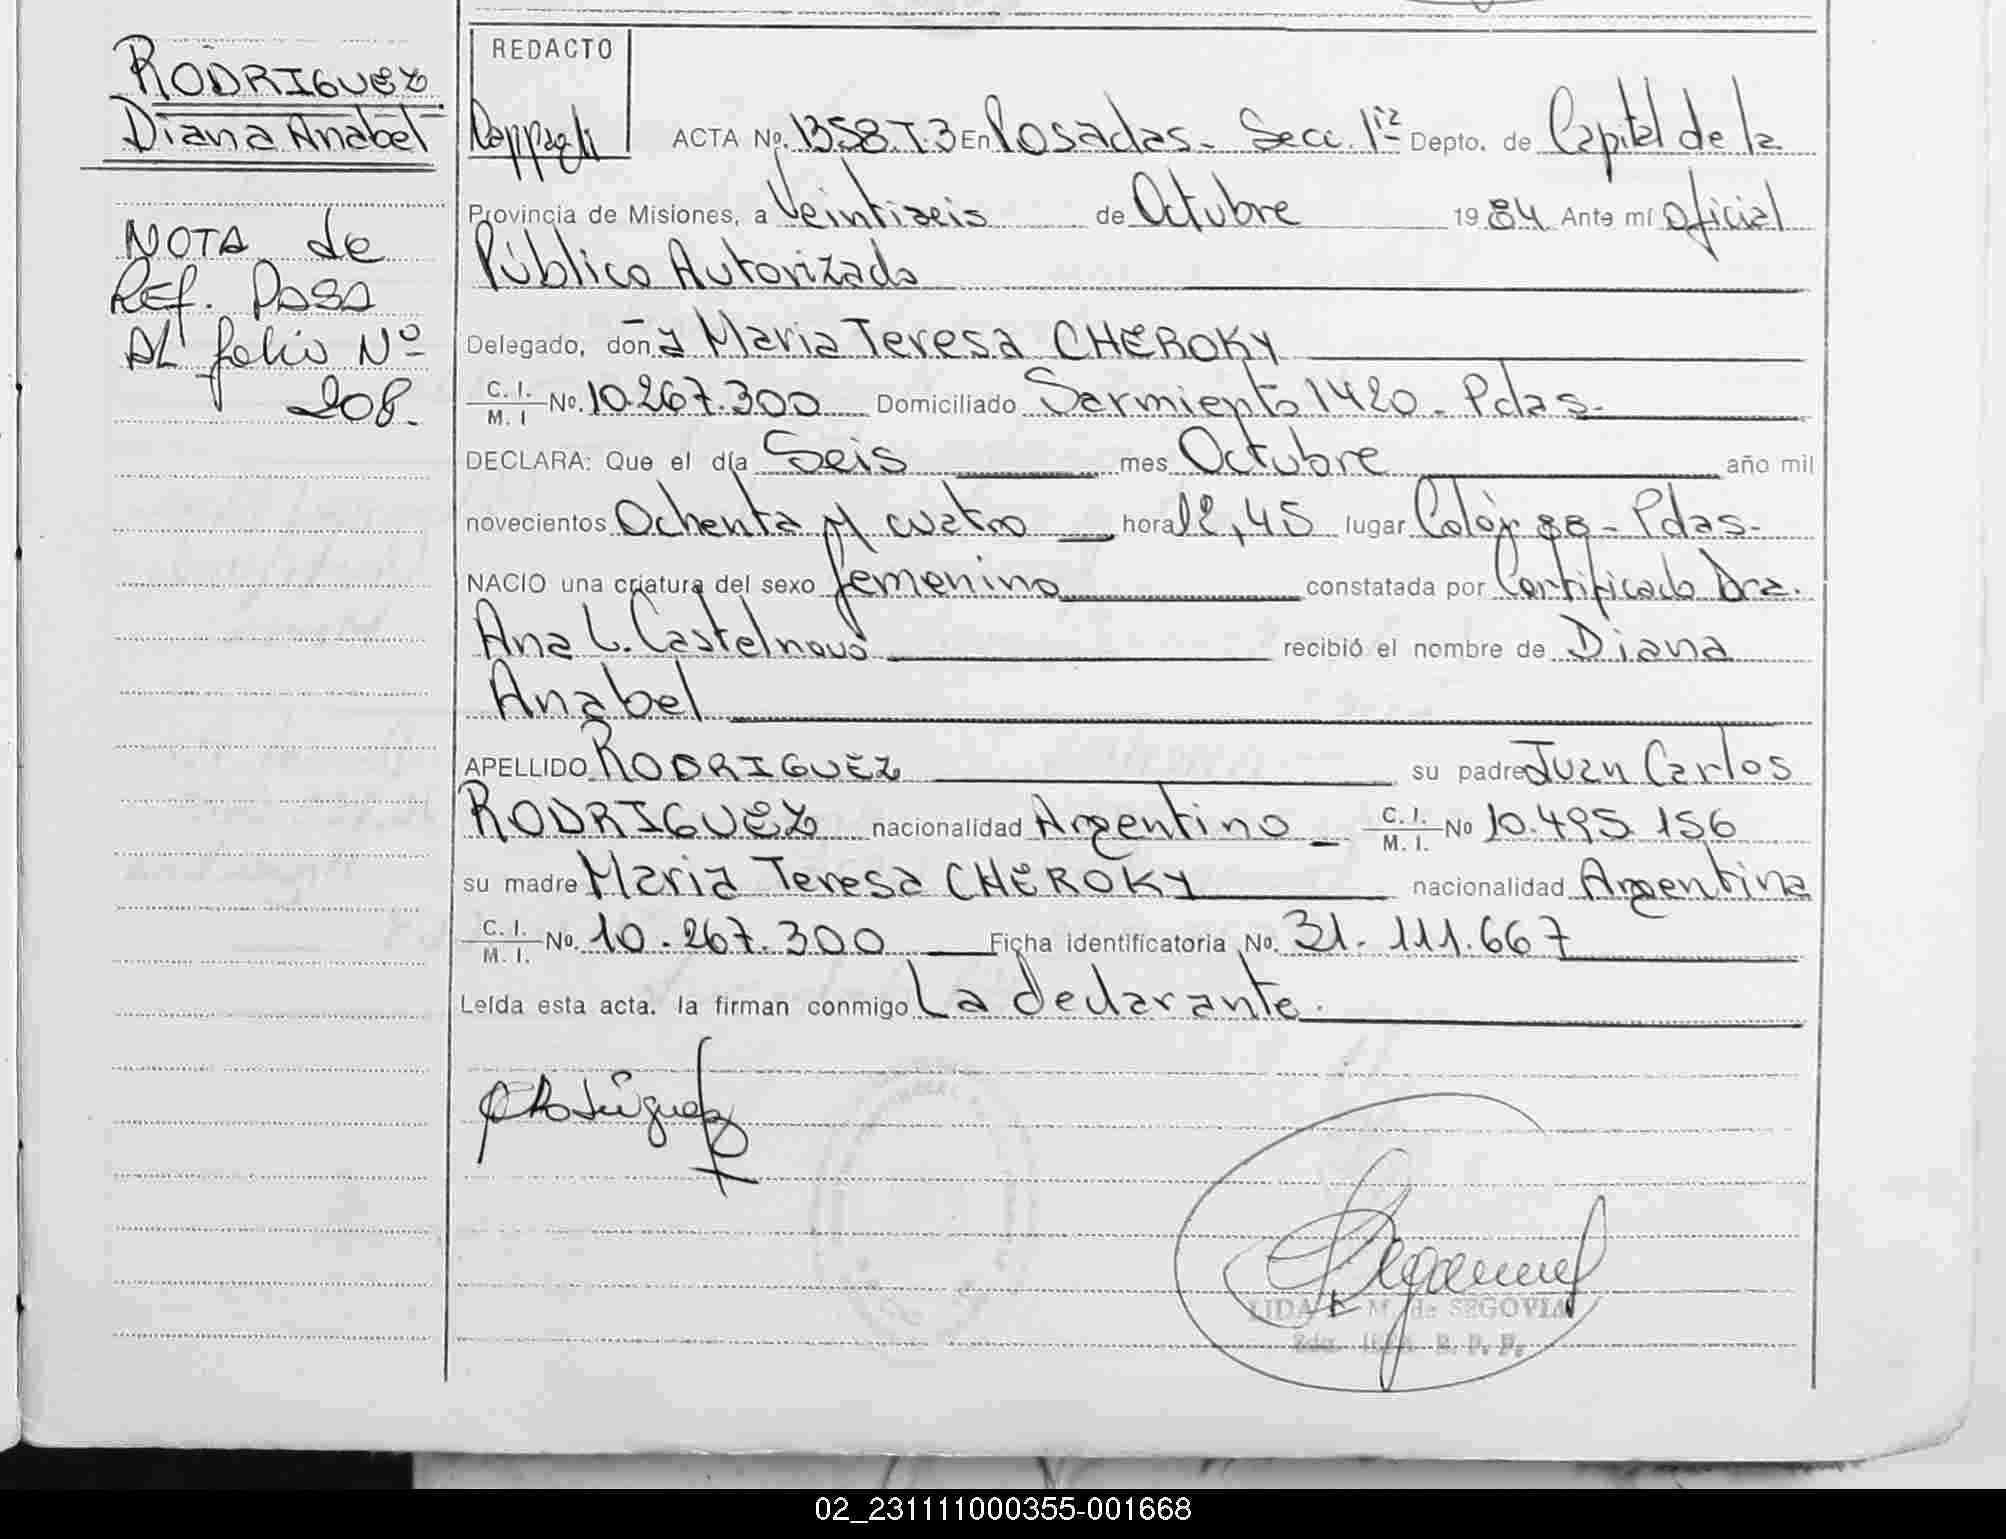 RODRIGUEZ
Diana Anabel
NOTA de
REf. PASA
AL folio Nº
208.
REDACTO
ACTA Nº. 1358 T3 En Posadas - Secc. 1ra Depto. de Capital de la
Provincia de Misiones, a Veintiseis de Octubre 1984 Ante mí Oficial
Público Autorizado
Delegado, don a Maria Teresa CHEROKY
C. I. / M. I Nº. 10.267.300 Domiciliado Sarmiento 1420 - Pdas -
DECLARA: Que el día Seis mes Octubre año mil
novecientos Ochenta y cuatro hora 12,45 lugar Colón 88 - Pdas -
NACIO una criatura del sexo femenino constatada por Certificado Dra.
Ana L. Castelnovo recibió el nombre de Diana
Anabel
APELLIDO RODRIGUEZ su padre Juan Carlos
RODRIGUEZ nacionalidad Argentino C. I. / M. I. Nº 10.495.156
su madre Maria Teresa CHEROKY nacionalidad Argentina
C. I. / M. I. Nº. 10.267.300 Ficha identificatoria Nº. 31.111.667
Leída esta acta. la firman conmigo La declarante.
Rodriguez
LIDA M. de SEGOVIA
02_231111000355-001668